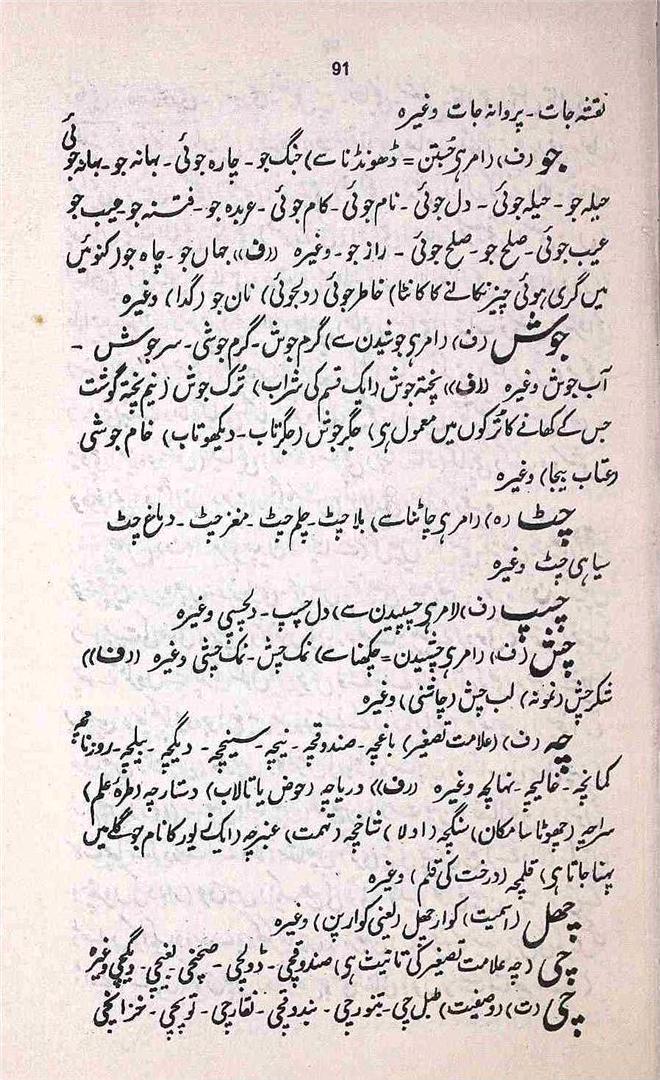 91
نقشہ جات - پروانہ جات وغیرہ
جو (ف) (امر ہی جُستن = ڈھونڈنا سے) جنگ جو - چارہ جوئی - بہانہ جو - بہانہ جوئی
حیلہ جو - حیلہ جوئی - دل جوئی - نام جوئی - کام جوئی - عربدہ جو - فتنہ جو - عیب جو
عیب جوئی - صلح جو - صلح جوئی - راز جو - وغیرہ ((ف)) جہاں جو - چاہ جو (کنوئیں
میں گری ہوئی چیز نکالنے کا کانٹا) خاطر جوئی (دلجوئی) نان جو (گدا) وغیرہ
جوش (ف) (امر ہی جوشیدن سے) گرم جوش - گرم جوشی - سرجوش -
آب جوش وغیرہ ((ف)) پختہ جوش (ایک قسم کی شراب) تُرک جوش (نیم پختہ گوشت
جس کے کھانے کا تُرکوں میں معمول ہی) جگر جوش (جگرتاب - دیکھو تاب) خام جوشی
(عتاب بیجا) وغیرہ
چٹ (ہ) (امر ہی چاٹنا سے) بلا چٹ - چلم چٹ - مغز چٹ - دماغ چٹ
سیاہی چٹ وغیرہ
چسپ (ف) (امر ہی چسپیدن سے) دل چسپ - دلچسپی وغیرہ
چش (ف) (امر ہی چشیدن = چکھنا سے) نمک چش - نمک چشی وغیرہ ((ف))
شکر چش (نمونہ) لب چش (چاشنی) وغیرہ
چہ (ف) (علامت تصغیر) باغچہ - صندوقچہ - نیچہ - سیخچہ - دیگچہ - بیلچہ - روزنامچہ
کمانچہ - غالیچہ - نہالچہ وغیرہ ((ف)) دریاچہ (حوض یا تالاب) دستارچہ (طرۂ علم)
سراچہ (چھوٹا سا مکان) سنگچہ (اولا) شاخچہ (تہمت) عنبرچہ (ایک زیور کا نام جو گلے میں
پہنا جاتا ہی) قلمچہ (درخت کی قلم) وغیرہ
چھل (اسمیت) کوارچھل (یعنی کوارپن) وغیرہ
چی (چہ علامت تصغیر کی تانیث ہی) صندوقچی - ڈولچی - صحنچی - بغچی - دیگچی وغیرہ
چی (ت) (وصفیت) طبل چی - تنبورچی - بندوقچی - نقارچی - توپچی - خزانچی